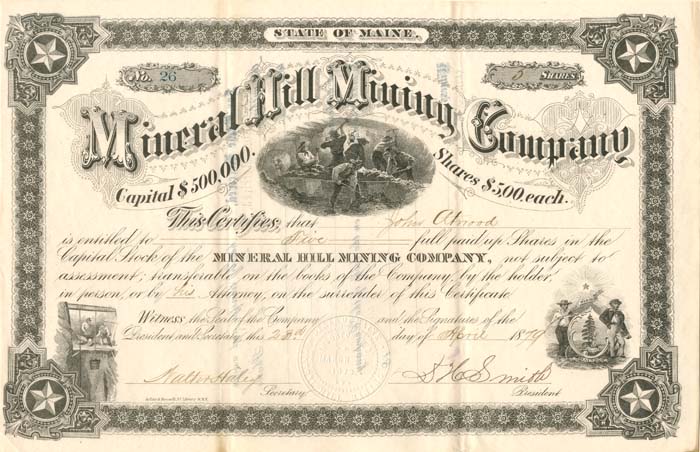 STATE OF MAINE.
No. 26
5 SHARES
Mineral Hill Mining Company
Capital $500,000. Shares $5.00. each.
This Certifies, that John Atwood
is entitled to Five full paid up Shares in the
Capital Stock of the MINERAL HILL MINING COMPANY, not subject to
assessment; transferable on the books of the Company, by the holder,
in person, or by his Attorney, on the surrender of this Certificate
Witness, the Seal of the Company and the Signatures of the
President and Secretary, this 23rd day of April 1879
Walter Haley S. H. Smith
Secretary. President